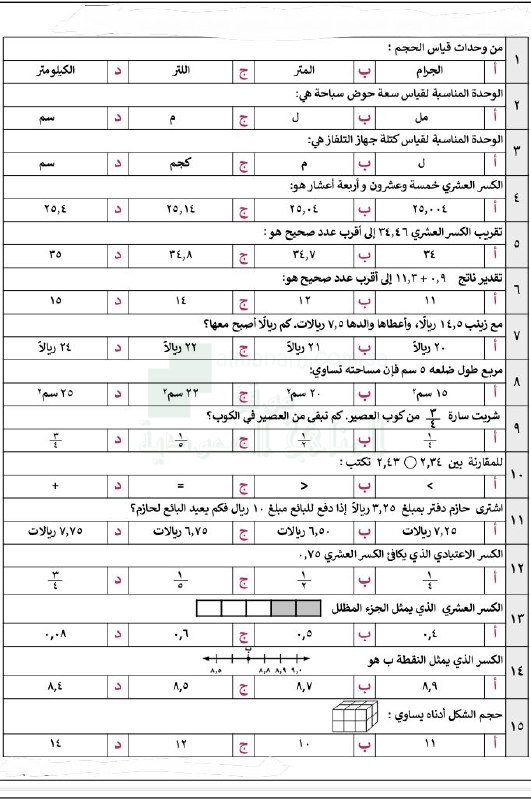 ١ من وحدات قياس الحجم :
أ الجرام ب المتر ج اللتر د الكيلومتر
٢ الوحدة المناسبة لقياس سعة حوض سباحة هي:
أ مل ب ل ج م د سم
٣ الوحدة المناسبة لقياس كتلة جهاز التلفاز هي:
أ ل ب م ج كجم د سم
٤ الكسر العشري خمسة وعشرون و أربعة أعشار هو:
أ ٢٥,٠٠٤ ب ٢٥,٠٤ ج ٢٥,١٤ د ٢٥,٤
٥ تقريب الكسر العشري ٣٤,٤٦ إلى أقرب عدد صحيح هو :
أ ٣٤ ب ٣٤,٧ ج ٣٤,٨ د ٣٥
٦ تقدير ناتج ٠,٩ + ١١,٣ إلى أقرب عدد صحيح هو:
أ ١١ ب ١٢ ج ١٤ د ١٥
٧ مع زينب ١٤,٥ ريالًا، وأعطاها والدها ٧,٥ ريالات. كم ريالًا أصبح معها؟
أ ٢٠ ريالاً ب ٢١ ريالاً ج ٢٢ ريالاً د ٢٤ ريالاً
٨ مربع طول ضلعه ٥ سم فإن مساحته تساوي:
أ ١٥ سم٢ ب ٢٠ سم٢ ج ٢٢ سم٢ د ٢٥ سم٢
٩ شربت سارة ٣/٤ من كوب العصير. كم تبقى من العصير في الكوب؟
أ ١/٤ ب ١/٢ ج ١/٥ د ٣/٤
١٠ للمقارنة بين ٢,٣٤ ◯ ٢,٤٣ تكتب :
أ < ب > ج = د +
١١ اشترى حازم دفتر بمبلغ ٣,٢٥ ريالاً إذا دفع للبائع مبلغ ١٠ ريال فكم يعيد البائع لحازم؟
أ ٧,٢٥ ريالات ب ٦,٥٠ ريالات ج ٦,٧٥ ريالات د ٧,٧٥ ريالات
١٢ الكسر الاعتيادي الذي يكافئ الكسر العشري ٠,٧٥
أ ١/٤ ب ١/٢ ج ١/٥ د ٣/٤
١٣ الكسر العشري الذي يمثل الجزء المظلل
أ ٠,٤ ب ٠,٥ ج ٠,٦ د ٠,٠٨
١٤ الكسر الذي يمثل النقطة ب هو
ب
٨,٥ ٨,٨ ٨,٩ ٩,٠
أ ٨,٩ ب ٨,٧ ج ٨,٥ د ٨,٤
١٥ حجم الشكل أدناه يساوي :
أ ١١ ب ١٠ ج ١٢ د ١٤